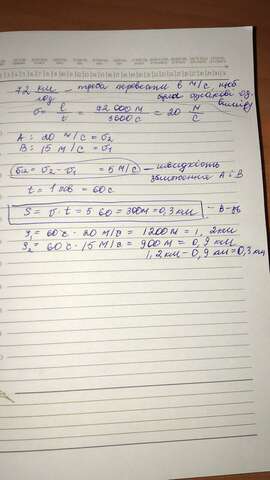 72 км/год — треба перевести в м/с щоб були однакові од. виміру
v = l/t = 72 000 м/3600 с = 20 м/с
A: 20 м/с = v₂
B: 15 м/с = v₁
v₂ - v₁ = 5 м/с — швидкість зближення А і В
t = 1 хв = 60с
S = v · t = 5 60 = 300м = 0,3 км — В-дь
S₁ = 60 с · 20 м/с = 1200 м = 1,2км
S₂ = 60 с · 15 м/с = 900 м = 0,9 км
1,2 км - 0,9 км = 0,3 км